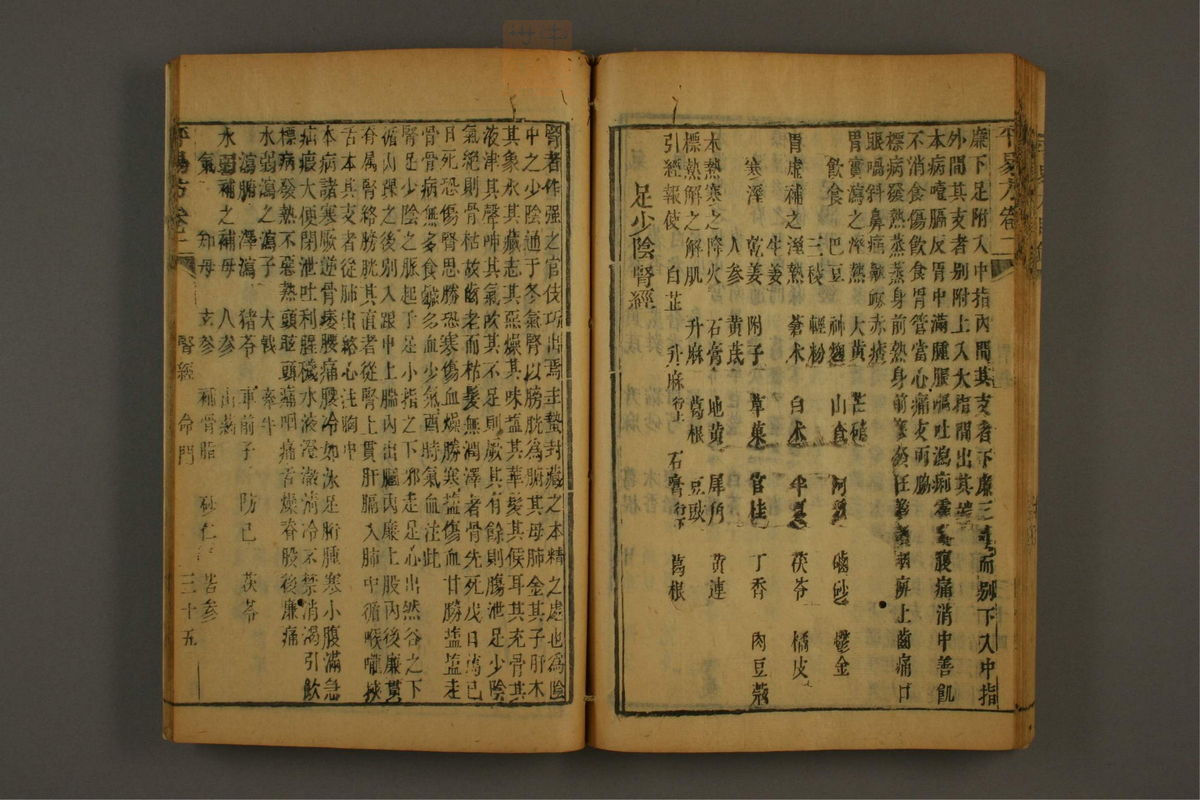 廉下足附入中指內間其支者下廉三寸而別下入中指
外間其支者別附上入大指間出其端
本病噎膈反胃中滿腫脹嘔吐瀉痢霍亂腹痛消中善飢
不消食傷飲食胃管當心痛支兩脇
標病發熱蒸蒸身前熱身前寒發狂譫語咽痹上齒痛口
眼喎斜鼻痛鼽衂赤㿀
胃實瀉之溼熱 大黃 芒硝
飲食 巴豆 神麯 山查 阿魏 硇砂 鬱金
三稜 輕粉
胃虛補之溼熱 蒼朮 白朮 半夏 茯苓 橘皮
生姜
寒溼 乾姜 附子 草菓 官桂 丁香 肉豆蔻
人参 黃芪
本熱寒之降火 石膏 地黃 犀角 黃連
標熱解之解肌 升麻 葛根 豆豉
引經報使 白芷 升麻行上 石膏行下 葛根
足少陰腎經
平易方卷二
腎者作强之官伎巧出焉主蟄封藏之本精之處也為陰
中之少陰通于冬氣腎以膀胱為腑其母肺金其子肝木
其象水其藏志其惡燥其味鹽其華髮其候耳其充骨其
液津其聲呻其氣吹其不足則厥其有餘則腸泄足少陰
氣絕則骨枯故齒老而枯髮無潤澤者骨先死戊日篤己
日死恐傷腎思勝恐寒傷血燥勝寒鹽傷血甘勝鹽鹽走
骨骨病無多食鹹多血少氣酉時氣血注此
腎足少陰之脈起于足小指之下邪走足心出然谷之下
循內踝之後別入跟中上腨內出膕內廉上股內後廉貫
脊属腎絡膀胱其直者從腎上貫肝膈入肺中循喉嚨挾
舌本其支者從肺出絡心注胸中
本病諸寒厥逆骨痿腰痛腰冷如氷足胻腫寒小腹滿急
疝瘕大便閉泄吐利腥穢水液澄澈清冷不禁消渴引飲
標病發熱不惡熱頭眩頭痛咽痛舌燥脊股後廉痛
水强瀉之瀉子 大戟 牽牛
瀉腑 澤瀉 猪苓 車前子 防己 茯苓
水弱補之補母 人参 山藥
氣 知母 玄参 補骨脂 砂仁 苦参
平易方卷二 腎經 命門 三十五